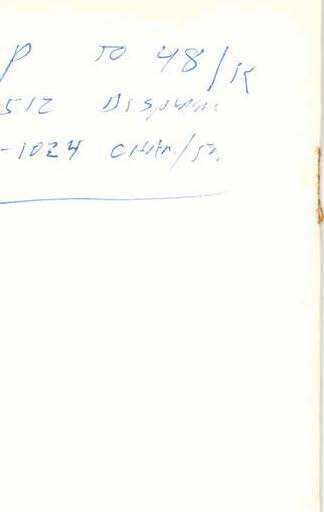 P TO 48/K
512 Display
-1024 CHAR/